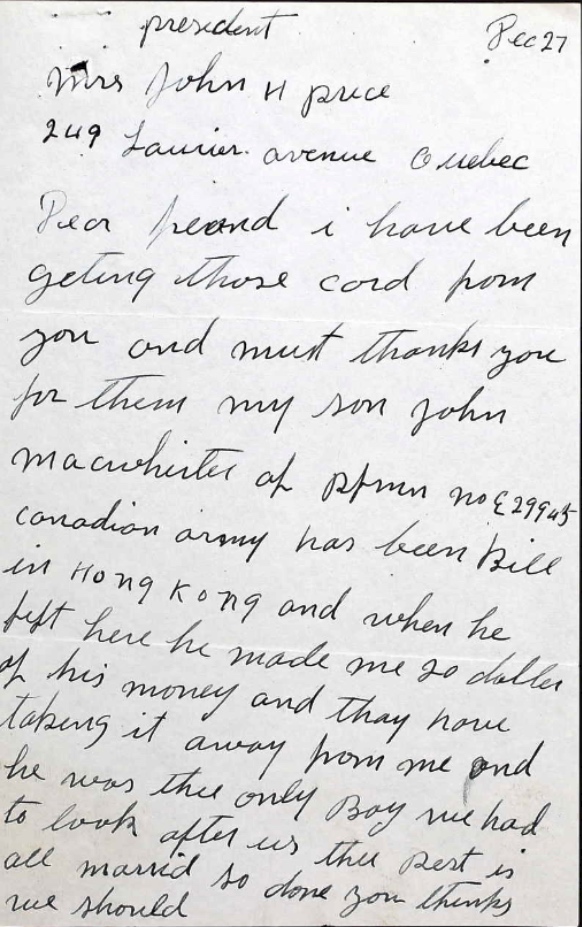 president Dec 27
Mrs John H price
249 Laurier avenue Quebec
Dear freand i have been
geting those card from
you and must thanks you
for them my son John
macwhirter of Rfmn no E29945
canadian army has been kill
in Hong Kong and when he
left here he made me 20 doller
of his money and thay have
taking it away from me and
he was thee only Boy we had
to look after us thee Rest is
all marrid so done you thinks
we should